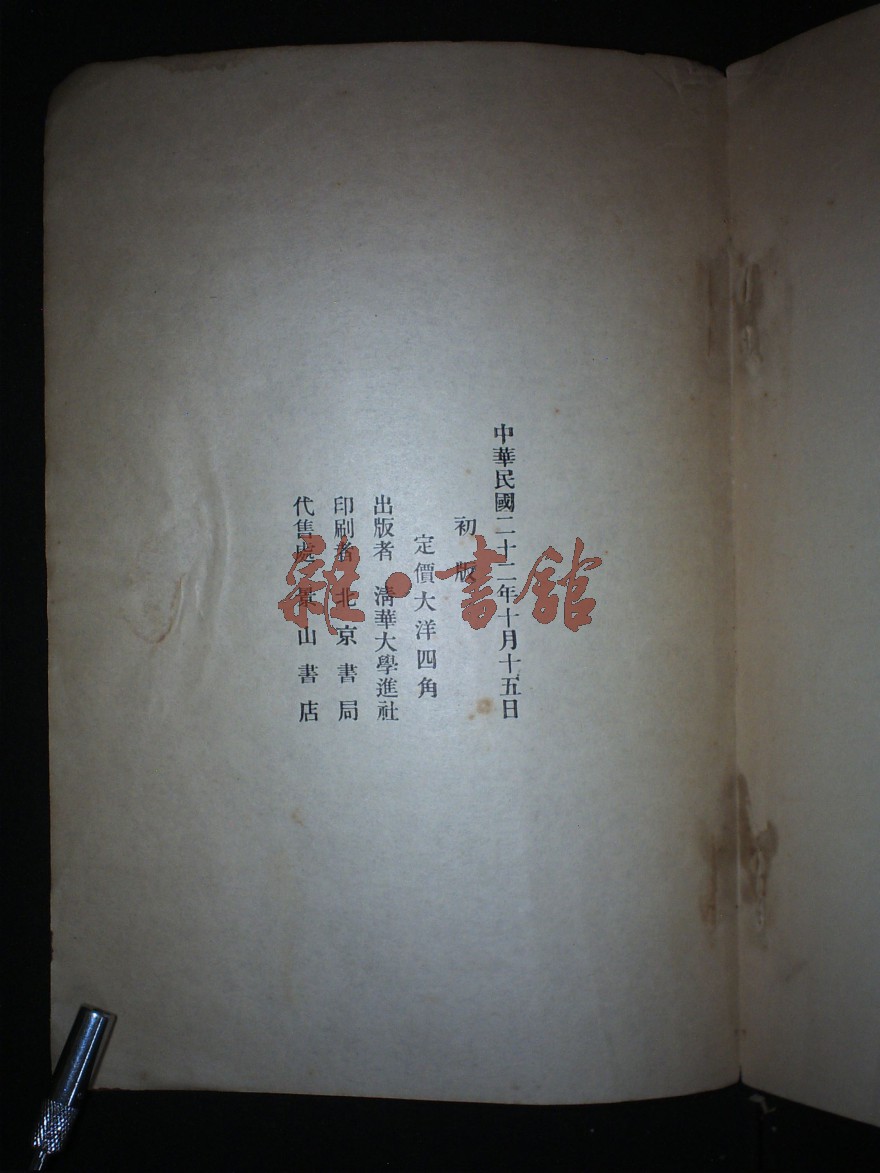 中華民國二十二年十月十五日
初版
定價大洋四角
出版者 清華大學進社
印刷者 北京書局
代售處 景山書店
雜·書館